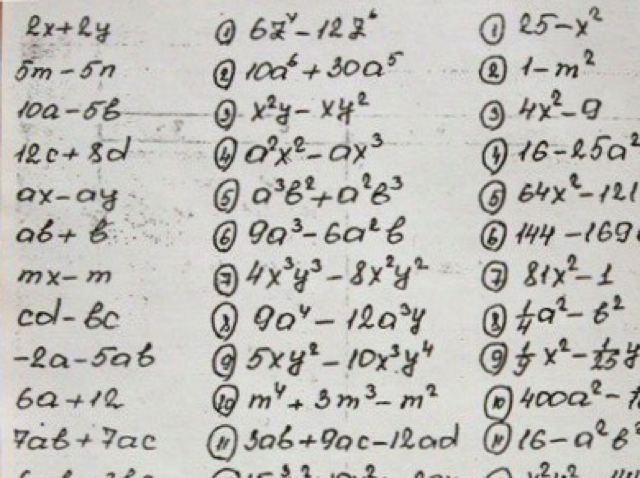 2x+2y
5m-5n
10a-5b
12c+8d
ax-ay
ab+b
mx-m
cd-bc
-2a-5ab
6a+12
7ab+7ac
① 6z⁴-12z⁶
② 10a⁶+30a⁵
③ x²y-xy²
④ a²x²-ax³
⑤ a³b²+a²b³
⑥ 9a³-6a²b
⑦ 4x³y³-8x²y²
⑧ 9a⁴-12a³y
⑨ 5xy²-10x³y⁴
⑩ m⁴+3m³-m²
⑪ 3ab+9ac-12ad
① 25-x²
② 1-m²
③ 4x²-9
④ 16-25a²
⑤ 64x²-121
⑥ 144-169
⑦ 81x²-1
⑧ 1/4a²-b²
⑨ 1/9x²-1/25y
⑩ 400a²-
⑪ 16-a²b²